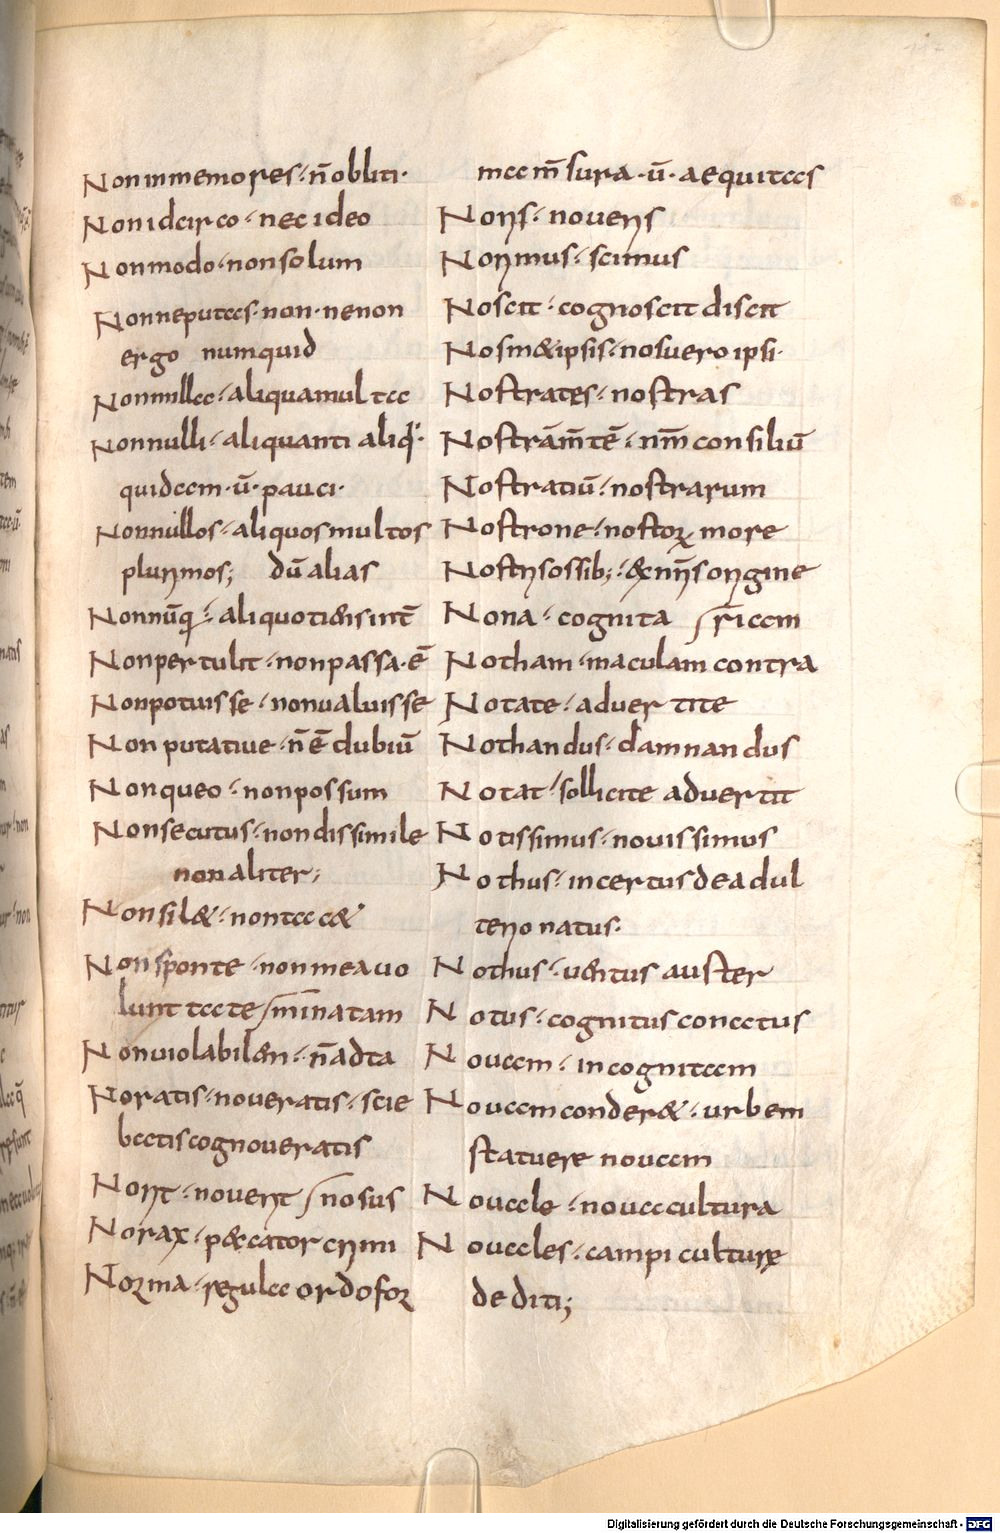 Noninmemores · n̄ obliti ·
Nonidcirco · nec ideo
Nonmodo · non solum
Nonneputas · non · nenon
ergo numquid
Nonnulla · aliquamulta
Nonnulli · aliquanti aliq̄ ·
quidam · ū · pauci ·
Nonnullos · aliquos multos
plurimos; dū alias
Nonnūq · aliquotiens int̄
Nonpertulit · non passa · ē
Nonpotuisse · nonualuisse
Nonputatiue · n̄ ē dubiū
Nonqueo · non possum
Nonsecutus · non dissimile
non aliter;
Nonsil& · non tac&
Nonsponte · non mea uo
luntate
Nonuiolabilem · n̄
Noratis · noueratis · scie
batis cognoueratis
Norit · nouerit
Norax · peccator crimi
Norma · regula ordo for
ma m̄sura · ū · aequitas
Noris · noueris
Norimus · scimus
Noscit · cognoscit discit
Nosm&ipsis · nos uero ipsi ·
Nostrates · nostras
Nostrām̄tē · nr̄m consiliū
Nostratiū · nostrarum
Nostrone · nostoꝝ more
Nostris ossib; · origine
Nona · cognita
Notham · maculam contra
Notate · aduertite
Nothandus · damnandus
Notat · sollicite aduertit
Notissimus · nouissimus
Nothus · incertus de adul
terio natus ·
Nothus · uentus auster
Notus · cognitus
Nouam · incognitam
Nouam conder& · urbem
statuere nouam
Nouale · noua cultura
Nouales · campi culturę
dediti;
Digitalisierung gefördert durch die Deutsche Forschungsgemeinschaft - DFG